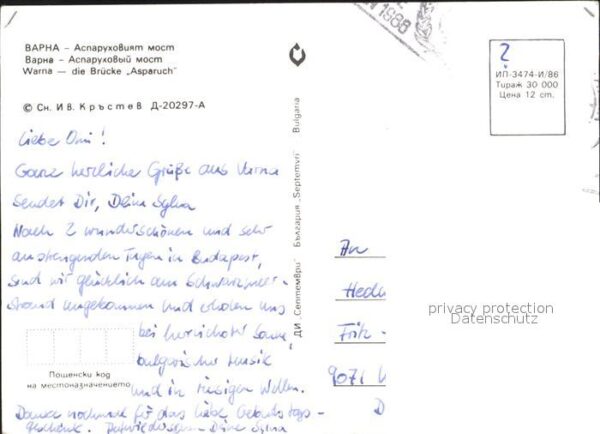 1988
ВАРНА – Аспаруховият мост
Варна – Аспаруховый мост
Warna — die Brücke „Asparuch"
© Сн. Ив. Кръстев Д-20297-А
Liebe Omi!
Ganz herzliche Grüße aus Varna
sendet Dir, Deine Sylva
Nach 2 wunderschönen und sehr
anstrengenden Tagen in Budapest,
sind wir glücklich am Schwarzmeer-
strand angekommen und erholen uns
bei herrlichster Sonne
bulgarischer Musik
und in riesigen Wellen.
Danke nochmal für das liebe Geburtstags-
geschenk. Aufwiedersehen Deine Sylva
Пощенски код
на местоназначението
ДИ „Септември" България „Septemvri" Bulgaria
?
ИП-3474-И/86
Тираж 30 000
Цена 12 ст.
An
Hed
Fritz-
9071
D
privacy protection
Datenschutz